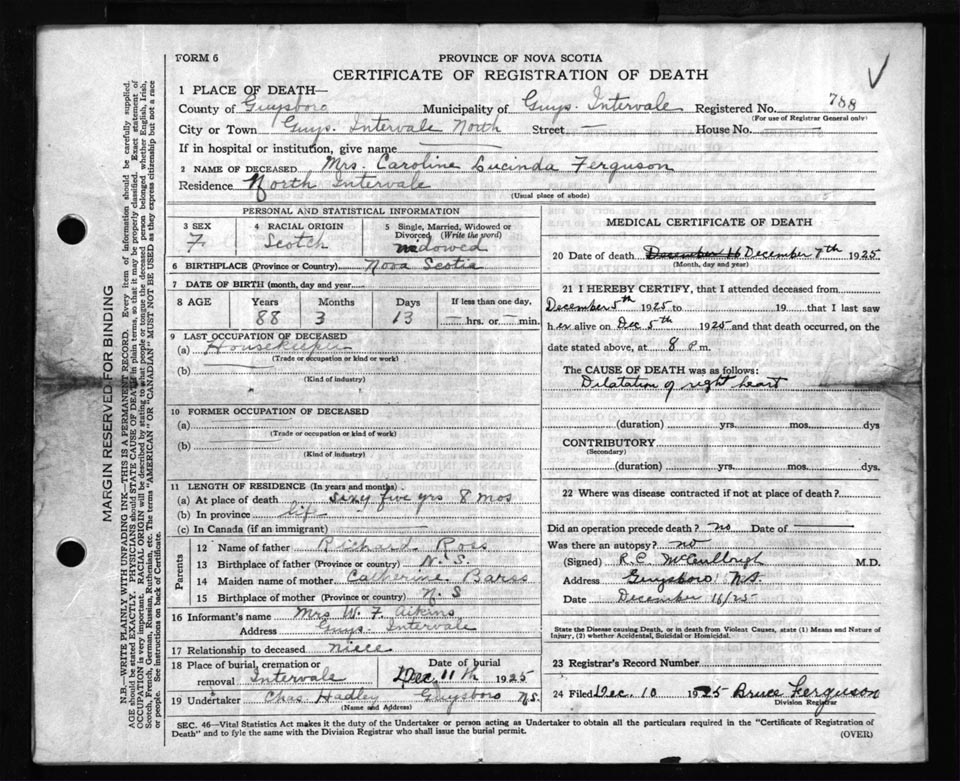 FORM 6
PROVINCE OF NOVA SCOTIA
CERTIFICATE OF REGISTRATION OF DEATH
1 PLACE OF DEATH—
County of Guysboro Municipality of Guys. Intervale Registered No. 788
(For use of Registrar General only)
City or Town Guys. Intervale North Street — House No.
If in hospital or institution, give name
2 NAME OF DECEASED Mrs. Caroline Lucinda Ferguson
Residence North Intervale
(Usual place of abode)
PERSONAL AND STATISTICAL INFORMATION
3 SEX F
4 RACIAL ORIGIN Scotch
5 Single, Married, Widowed or Divorced (Write the word) Widowed
6 BIRTHPLACE (Province or Country) Nova Scotia
7 DATE OF BIRTH (month, day and year)
8 AGE Years 88 Months 3 Days 13 If less than one day, — hrs. or — min.
9 LAST OCCUPATION OF DECEASED
(a) Housekeeper
(Trade or occupation or kind or work)
(b)
(Kind of industry)
10 FORMER OCCUPATION OF DECEASED
(a)
(Trade or occupation or kind of work)
(b)
(Kind of industry)
11 LENGTH OF RESIDENCE (In years and months)
(a) At place of death sixty five yrs 8 mos
(b) In province life
(c) In Canada (if an immigrant)
Parents
12 Name of father Richard Ross
13 Birthplace of father (Province or country) N. S.
14 Maiden name of mother Catherine Barss
15 Birthplace of mother (Province or country) N. S
16 Informant's name Mrs W. F. Aikins
Address Guys. Intervale
17 Relationship to deceased niece
18 Place of burial, cremation or removal Intervale Date of burial Dec. 11th 1925
19 Undertaker Chas. Hadley Guysboro N.S.
(Name and Address)
MEDICAL CERTIFICATE OF DEATH
20 Date of death December 16 December 7th 1925
(Month, day and year)
21 I HEREBY CERTIFY, that I attended deceased from
December 5th 1925 to 19 that I last saw
her alive on Dec 5th 1925 and that death occurred, on the
date stated above, at 8 P m.
The CAUSE OF DEATH was as follows:
Dilatation of right heart
(duration) yrs. mos. dys
CONTRIBUTORY
(Secondary)
(duration) yrs. mos. dys.
22 Where was disease contracted if not at place of death?
Did an operation precede death? no Date of
Was there an autopsy? no
(Signed) R.C. McCullough M.D.
Address Guysboro N.S.
Date December 16/25
State the Disease causing Death, or in death from Violent Causes, state (1) Means and Nature of
Injury, (2) whether Accidental, Suicidal or Homicidal.
23 Registrar's Record Number
24 Filed Dec. 10 1925 Bruce Ferguson
Division Registrar
SEC. 46—Vital Statistics Act makes it the duty of the Undertaker or person acting as Undertaker to obtain all the particulars required in the "Certificate of Registration of
Death" and to fyle the same with the Division Registrar who shall issue the burial permit.
(OVER)
MARGIN RESERVED FOR BINDING
N.B.—WRITE PLAINLY WITH UNFADING INK—THIS IS A PERMANENT RECORD. Every item of information should be carefully supplied.
AGE should be stated EXACTLY. PHYSICIANS should STATE CAUSE OF DEATH in plain terms, so that it may be properly classified. Exact statement of
OCCUPATION is very important. RACIAL ORIGIN will be described by stating to what people or tongue the deceased person belonged whether English, Irish,
Scotch, French, German, Russian, Ruthenian, etc. The terms "AMERICAN" or "CANADIAN" MUST NOT BE USED as they express citizenship but not a race
or people. See instructions on back of Certificate.